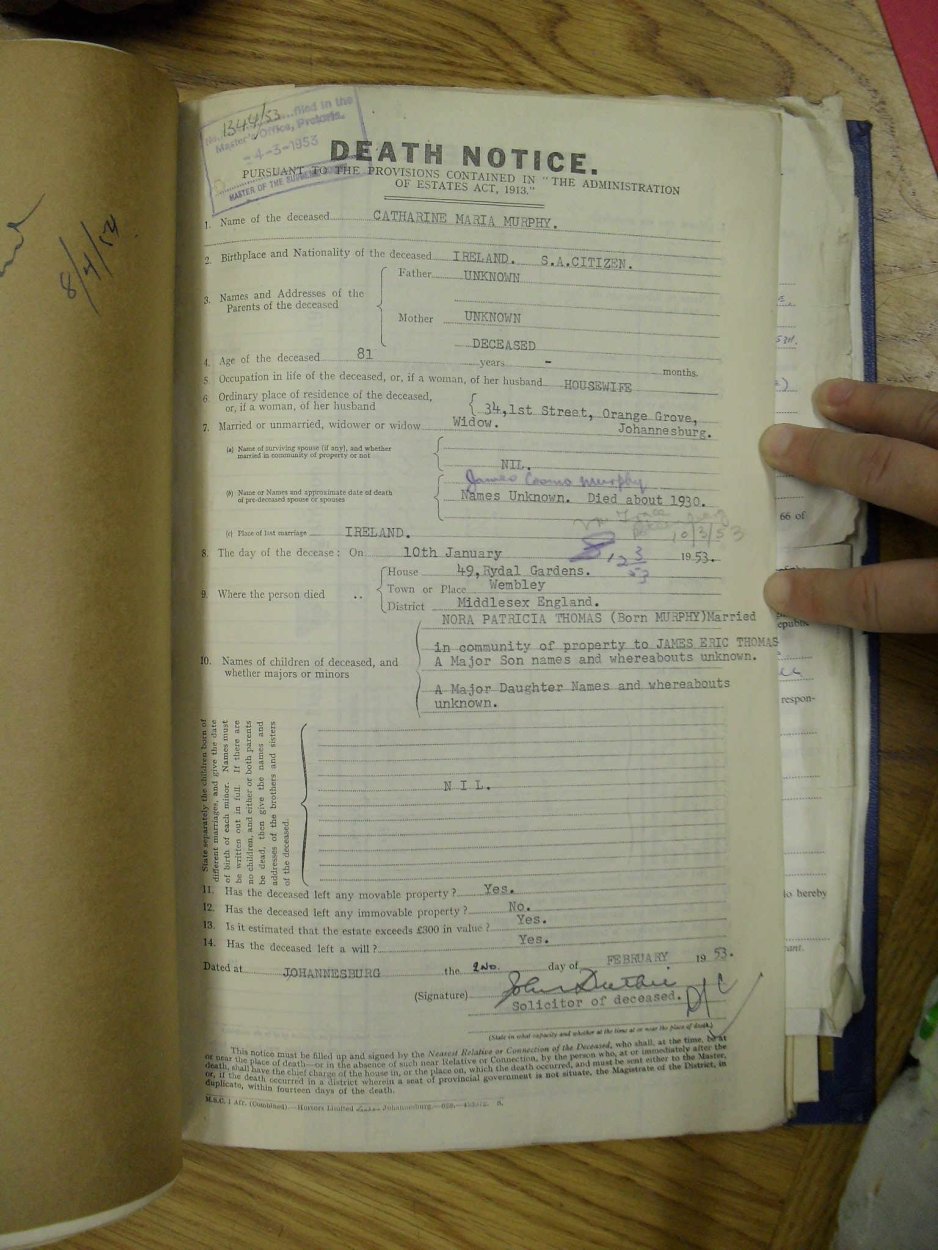 8/4/54
No. 1344/53 filed in the
Master's Office, Pretoria.
- 4-3-1953
MASTER OF THE SUPREME
DEATH NOTICE.
PURSUANT TO THE PROVISIONS CONTAINED IN "THE ADMINISTRATION
OF ESTATES ACT, 1913."
1. Name of the deceased CATHARINE MARIA MURPHY.
2. Birthplace and Nationality of the deceased IRELAND. S.A.CITIZEN.
3. Names and Addresses of the Parents of the deceased
Father UNKNOWN
Mother UNKNOWN
DECEASED
4. Age of the deceased 81 years - months.
5. Occupation in life of the deceased, or, if a woman, of her husband HOUSEWIFE
6. Ordinary place of residence of the deceased,
or, if a woman, of her husband 34,1st Street, Orange Grove,
Johannesburg.
7. Married or unmarried, widower or widow Widow.
(a) Name of surviving spouse (if any), and whether
married in community of property or not NIL.
James Cosmo Murphy
(b) Name or Names and approximate date of death
of pre-deceased spouse or spouses Names Unknown. Died about 1930.
10/3/53
(c) Place of last marriage IRELAND.
8. The day of the decease: On 10th January 1953.
9. Where the person died ..
House 49,Rydal Gardens.
Town or Place Wembley
District Middlesex England.
10. Names of children of deceased, and
whether majors or minors
NORA PATRICIA THOMAS (Born MURPHY)Married
in community of property to JAMES ERIC THOMAS
A Major Son names and whereabouts unknown.
A Major Daughter Names and whereabouts
unknown.
State separately the children born of
different marriages, and give the date
of birth of each minor. Names must
be written out in full. If there are
no children, and either or both parents
be dead, then give the names and
addresses of the brothers and sisters
of the deceased.
N I L.
11. Has the deceased left any movable property? Yes.
12. Has the deceased left any immovable property? No.
13. Is it estimated that the estate exceeds £300 in value? Yes.
14. Has the deceased left a will? Yes.
Dated at JOHANNESBURG the 2ND. day of FEBRUARY 1953.
(Signature) John Duthie
Solicitor of deceased.
(State in what capacity and whether at the time at or near the place of death.)
This notice must be filled up and signed by the Nearest Relative or Connection of the Deceased, who shall, at the time, be at
or near the place of death—or in the absence of such near Relative or Connection, by the person who, at or immediately after the
death, shall have the chief charge of the house in, or the place on, which the death occurred, and must be sent either to the Master,
or, if the death occurred in a district wherein a seat of provincial government is not situate, the Magistrate of the District, in
duplicate, within fourteen days of the death.
M.S.C. 1 Afr. (Combined).—Hortors Limited
Johannesburg
66 of
respon-
to hereby